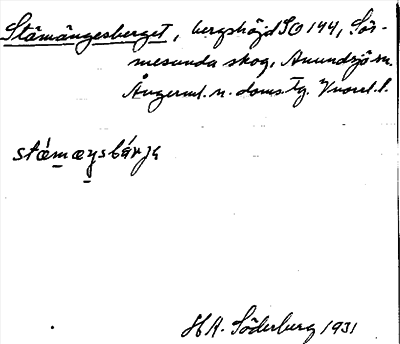 Stämängesberget, bergshöjd SO 144, Sör-
mesunda skog, Anundsjö sn.
Ångerml. n. doms. tg. Vnorrl. l.
stǽmæŋsbárjɐ
H A. Söderberg 1931